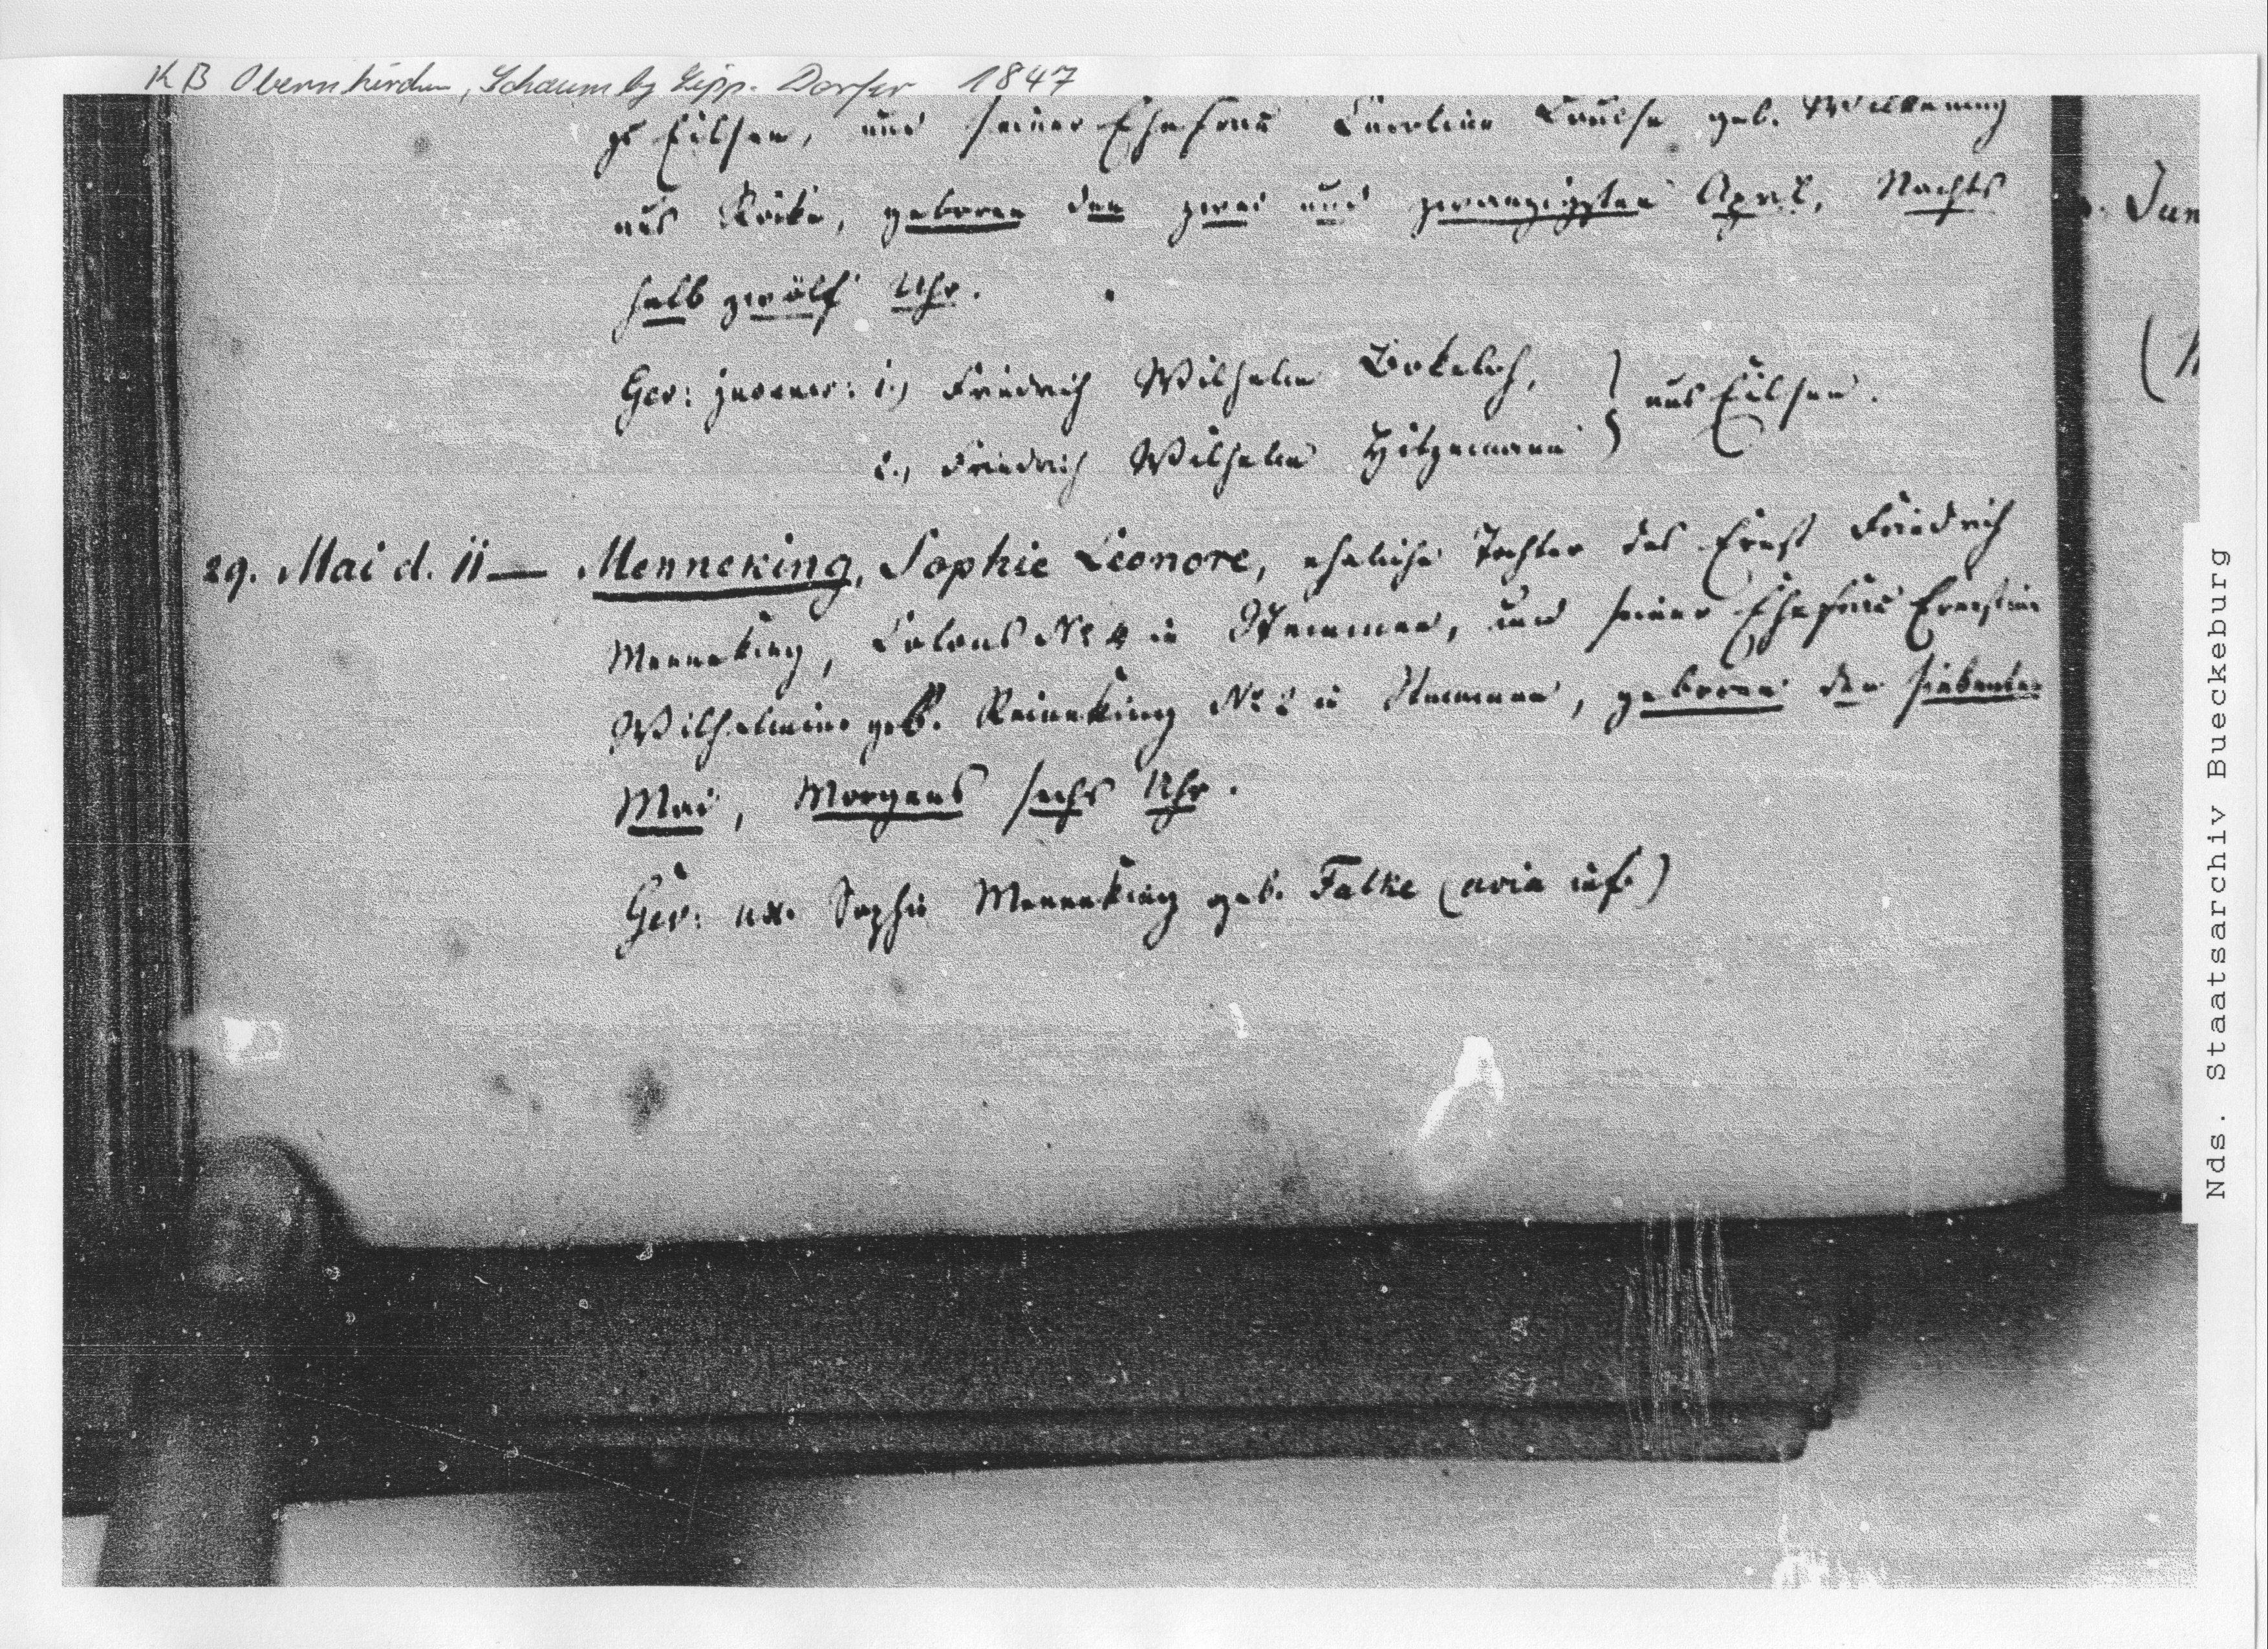 KB Obernkirchen, Schaumbg Lipp. Dörfer 1847
zu Eilsen, und seiner Ehefrau Caroline Louise geb. Wilkening
aus Röcke, geboren den zwei und zwanzigsten April, Nachts
halb zwölf Uhr.
Gev: 1.) Friedrich Wilhelm Bokeloh, } aus Eilsen.
2., Friedrich Wilhelm Hitzemann
29. Mai d. 11 — Menneking, Sophie Leonore, eheliche Tochter des Ernst Friedrich
Menneking, Colons No 4 in Stemmen, und seiner Ehefrau Ernestine
Wilhelmine geb. Reineking No 2 in Stemmen, geboren den siebenten
Mai, Morgens sechs Uhr.
Gev: ux. Sophie Menneking geb. Falke (avia inf.)
Jun
Nds. Staatsarchiv Bueckeburg